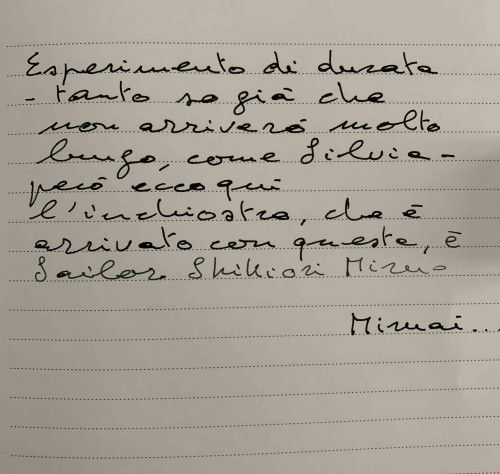 Esperimento di durata
- tanto so già che
non arriverò molto
lungo, come Silvia -
però ecco qui
l'inchiostro, che è
arrivato con queste, è
Sailor Shikiori Mizu-
Mizuai...